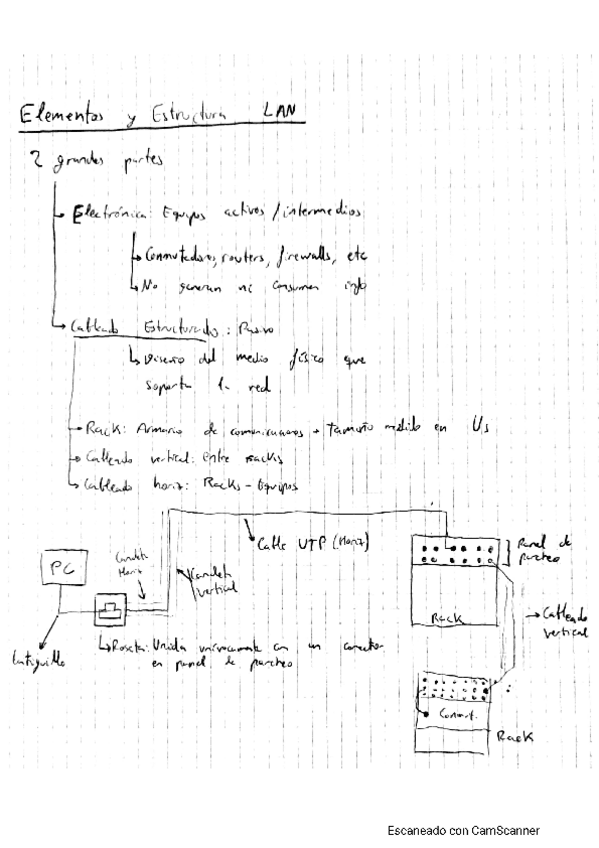 Elementos y Estructura LAN
2 grandes partes
Electrónica: Equipos activos / intermedios
Conmutadores, routers, firewalls, etc
No generan ni consumen info
Cableado Estructurado: Pasivo
Diseño del medio físico que
soporta la red
Rack: Armario de comunicaciones → Tamaño medido en Us
Cableado vertical: entre racks
Cableado horiz: Racks - Equipos
Cable UTP (Horiz)
Panel de
parcheo
Canaleta
Horiz
PC
Canaleta
vertical
Rack
Cableado
vertical
Latiguillo
Roseta: Unida unívocamente con un conector
en panel de parcheo
Conmut.
Rack
Escaneado con CamScanner